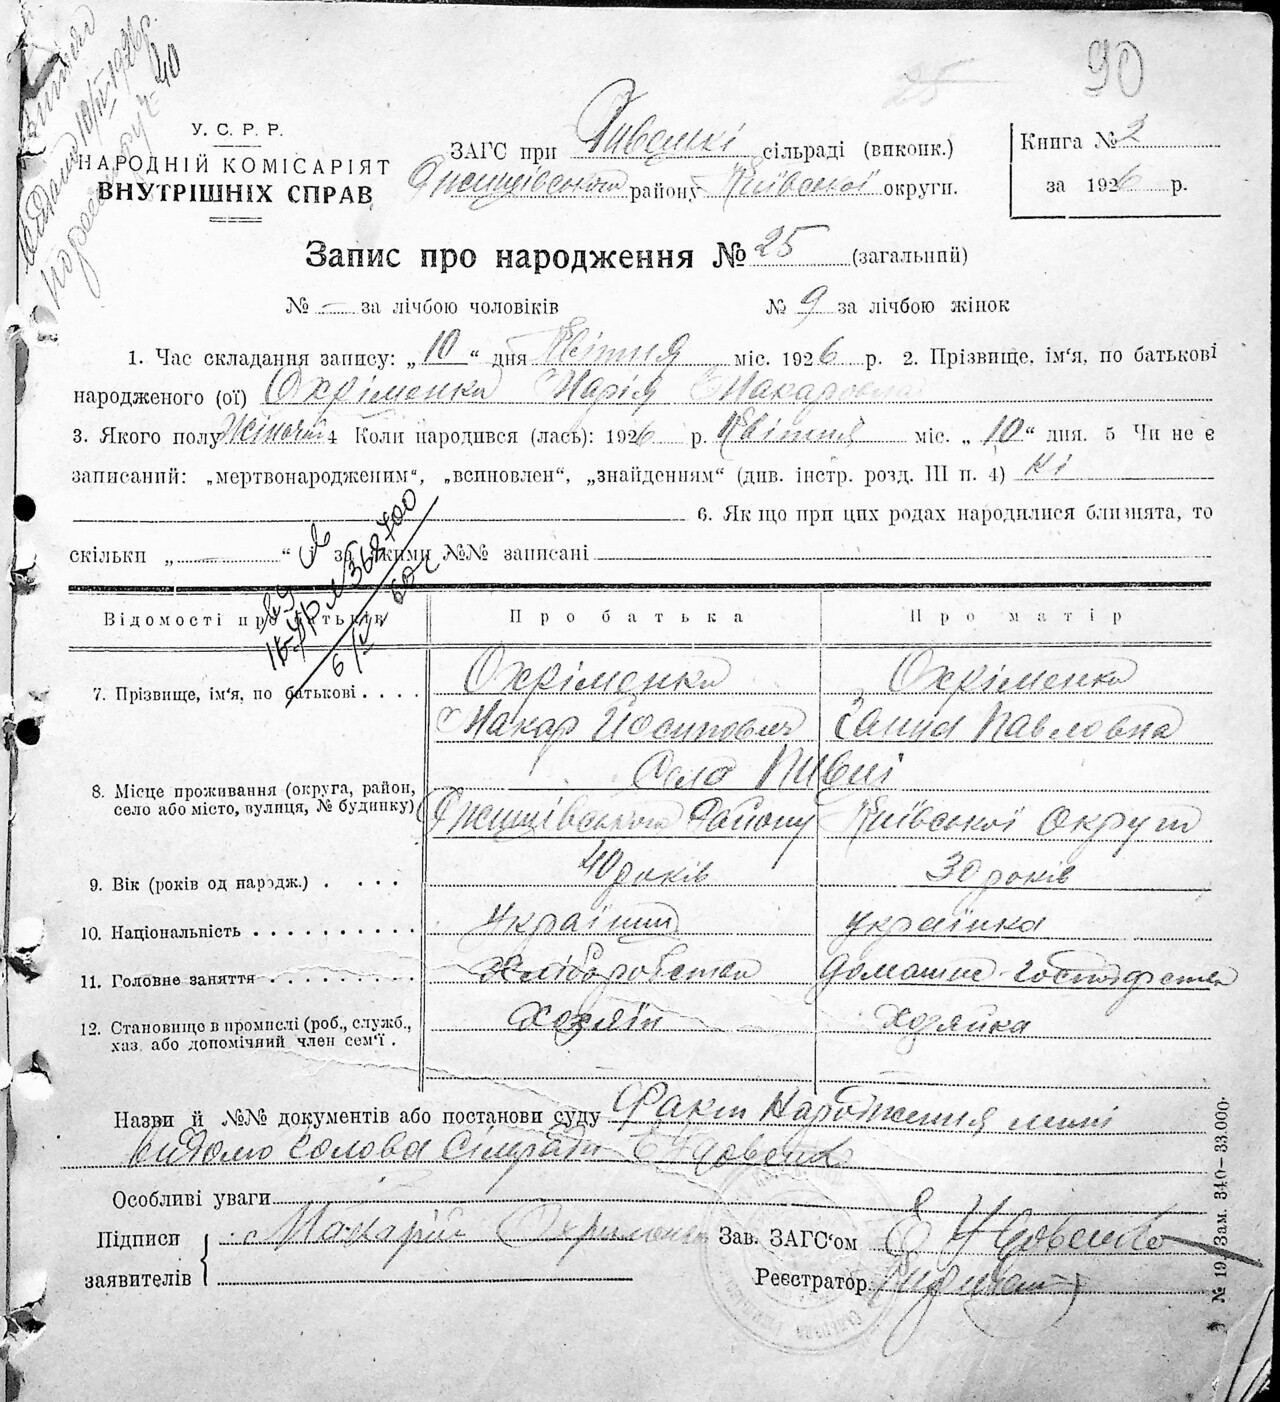 90
25
У. С. Р. Р.
НАРОДНІЙ КОМІСАРІЯТ
ВНУТРІШНІХ СПРАВ
ЗАГС при Пивецькі сільраді (виконк.)
Ржищівського району Київської округи.
Книга № 2
за 1926 р.
Запис про народження № 25 (загальний)
№ — за лічбою чоловіків № 9 за лічбою жінок
1. Час складання запису: „10“ дня Квітня міс. 1926 р. 2. Прізвище, ім'я, по батькові
народженого (ої) Охріменко Марія Макаровна
3. Якого полу Жіночій 4 Коли народився (лась): 1926 р. Квітня міс. „10“ дня. 5 Чи не є
записаний: „мертвонародженим“, „всиновлен“, „знайденням“ (див. інстр. розд. III п. 4) Ні
6. Як що при цих родах народилися близнята, то
скільки „ “ за якими №№ записані
Відомості про батьків Про батька Про матір
7. Прізвище, ім'я, по батькові . . . . Охріменко Охріменко
Макар Йосипович Ганна Павловна
8. Місце проживання (округа, район, село або місто, вулиця, № будинку) Село Пивці
Ржищівського Району Київської Округи
9. Вік (років од народж.) . . . . 40 років 30 років
10. Національність . . . . . . . . . . Українець українка
11. Головне заняття . . . . . . . . Хліборобство домашнє господарство
12. Становище в промислі (роб., служб., хаз. або допомічний член сем'ї . Хозяїн Хозяйка
Назви й №№ документів або постанови суду Факт Народження мині
видомо Голова Сільради Є Удовенко
Особливі уваги
Підписи заявителів Макарій Охрименко
Зав. ЗАГС'ом Є Удовенко
Реєстратор
№ 19. Зам. 340–33.000.